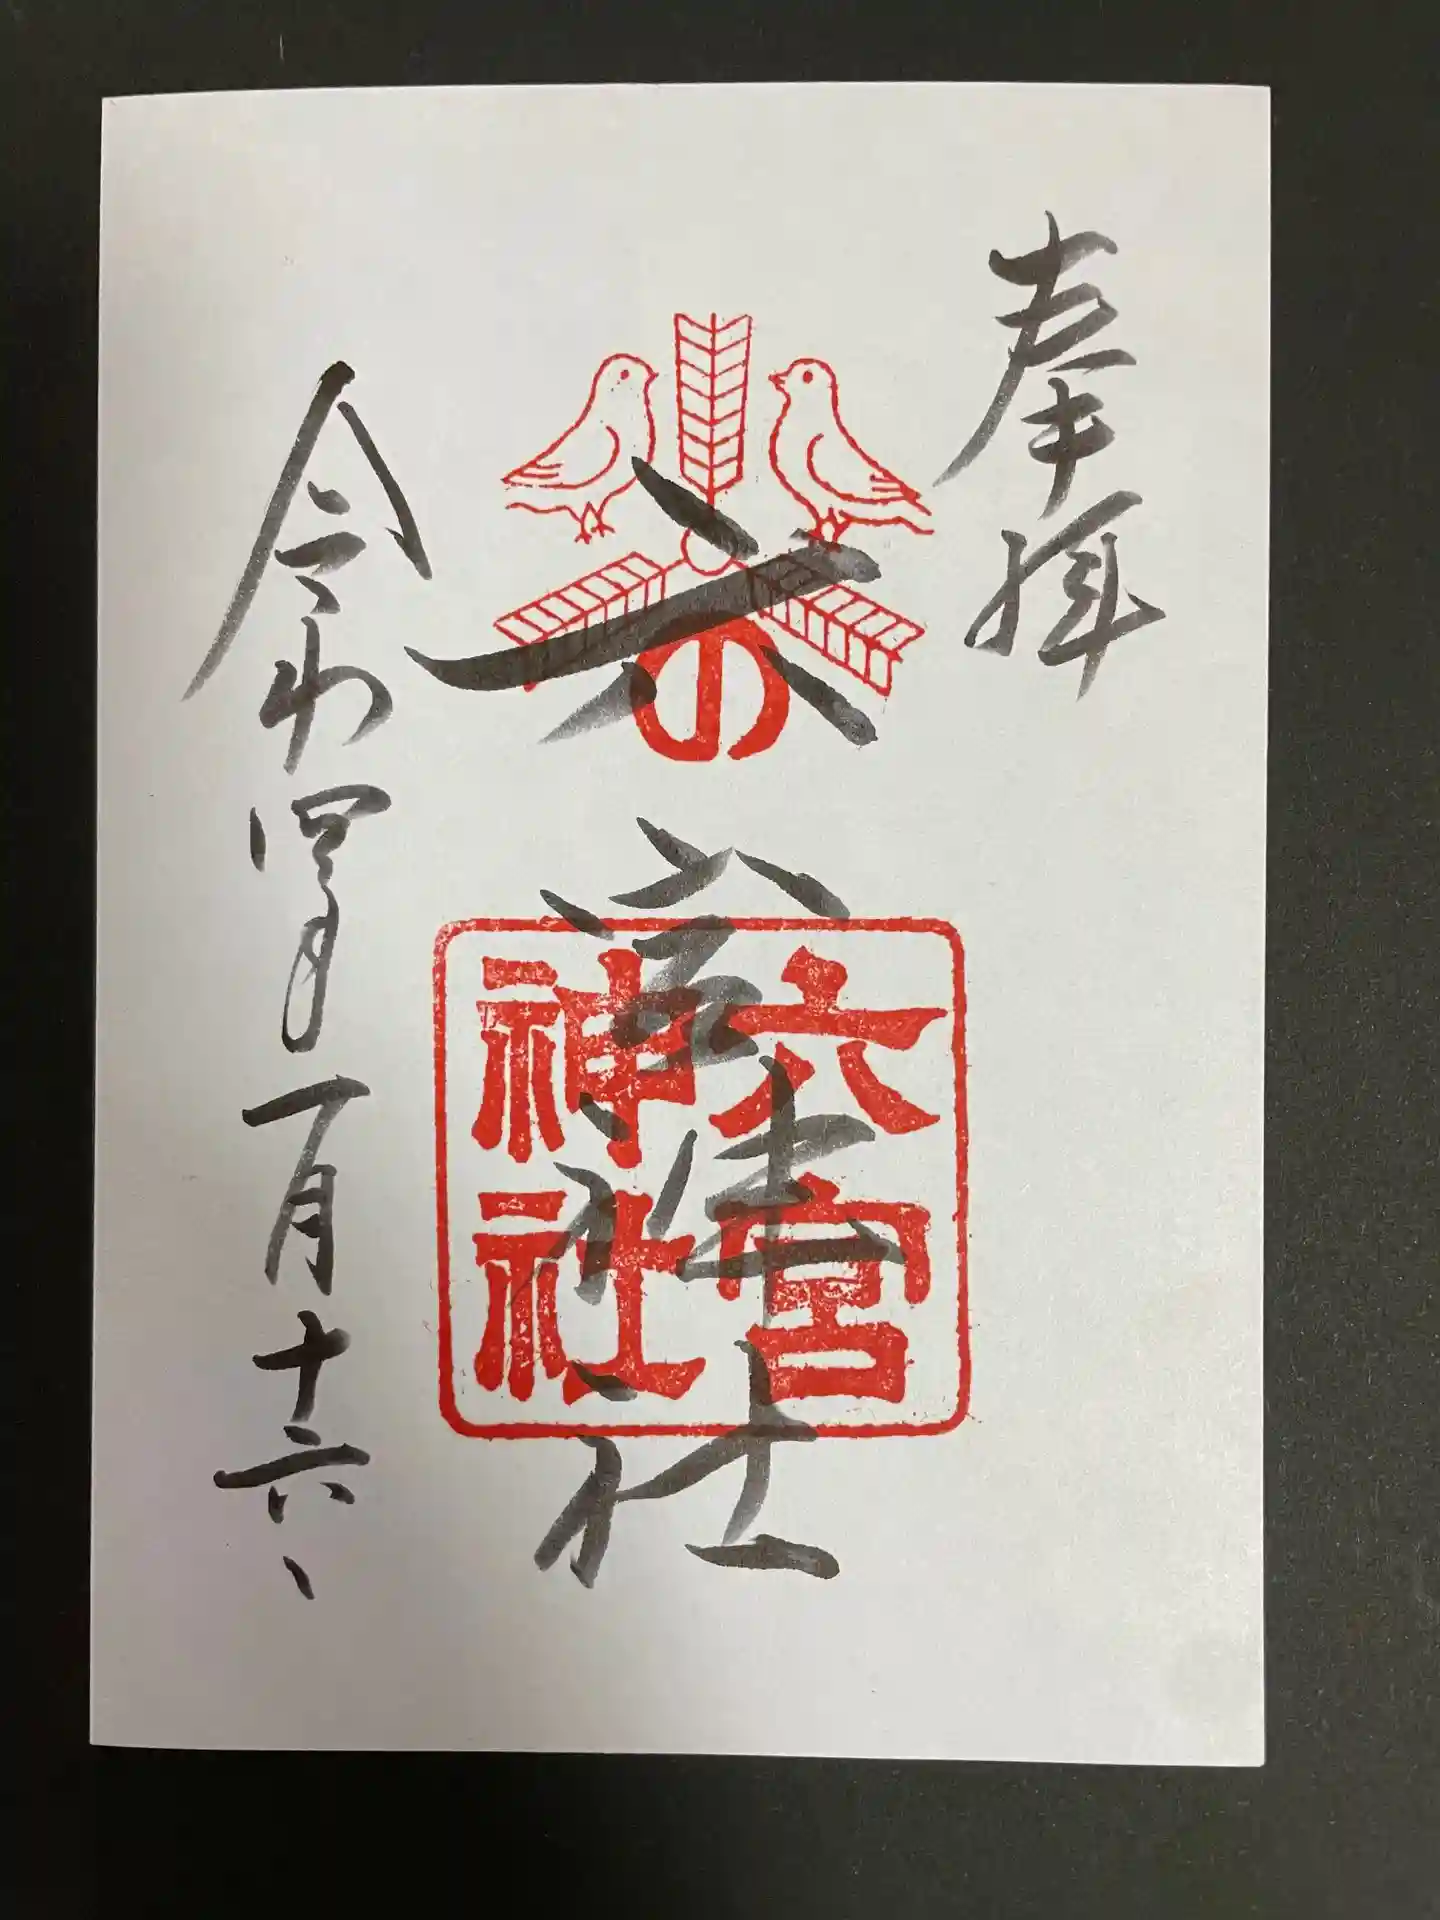 奉拝
六宮神社
の
六宮
神社
令和四年一月十六日